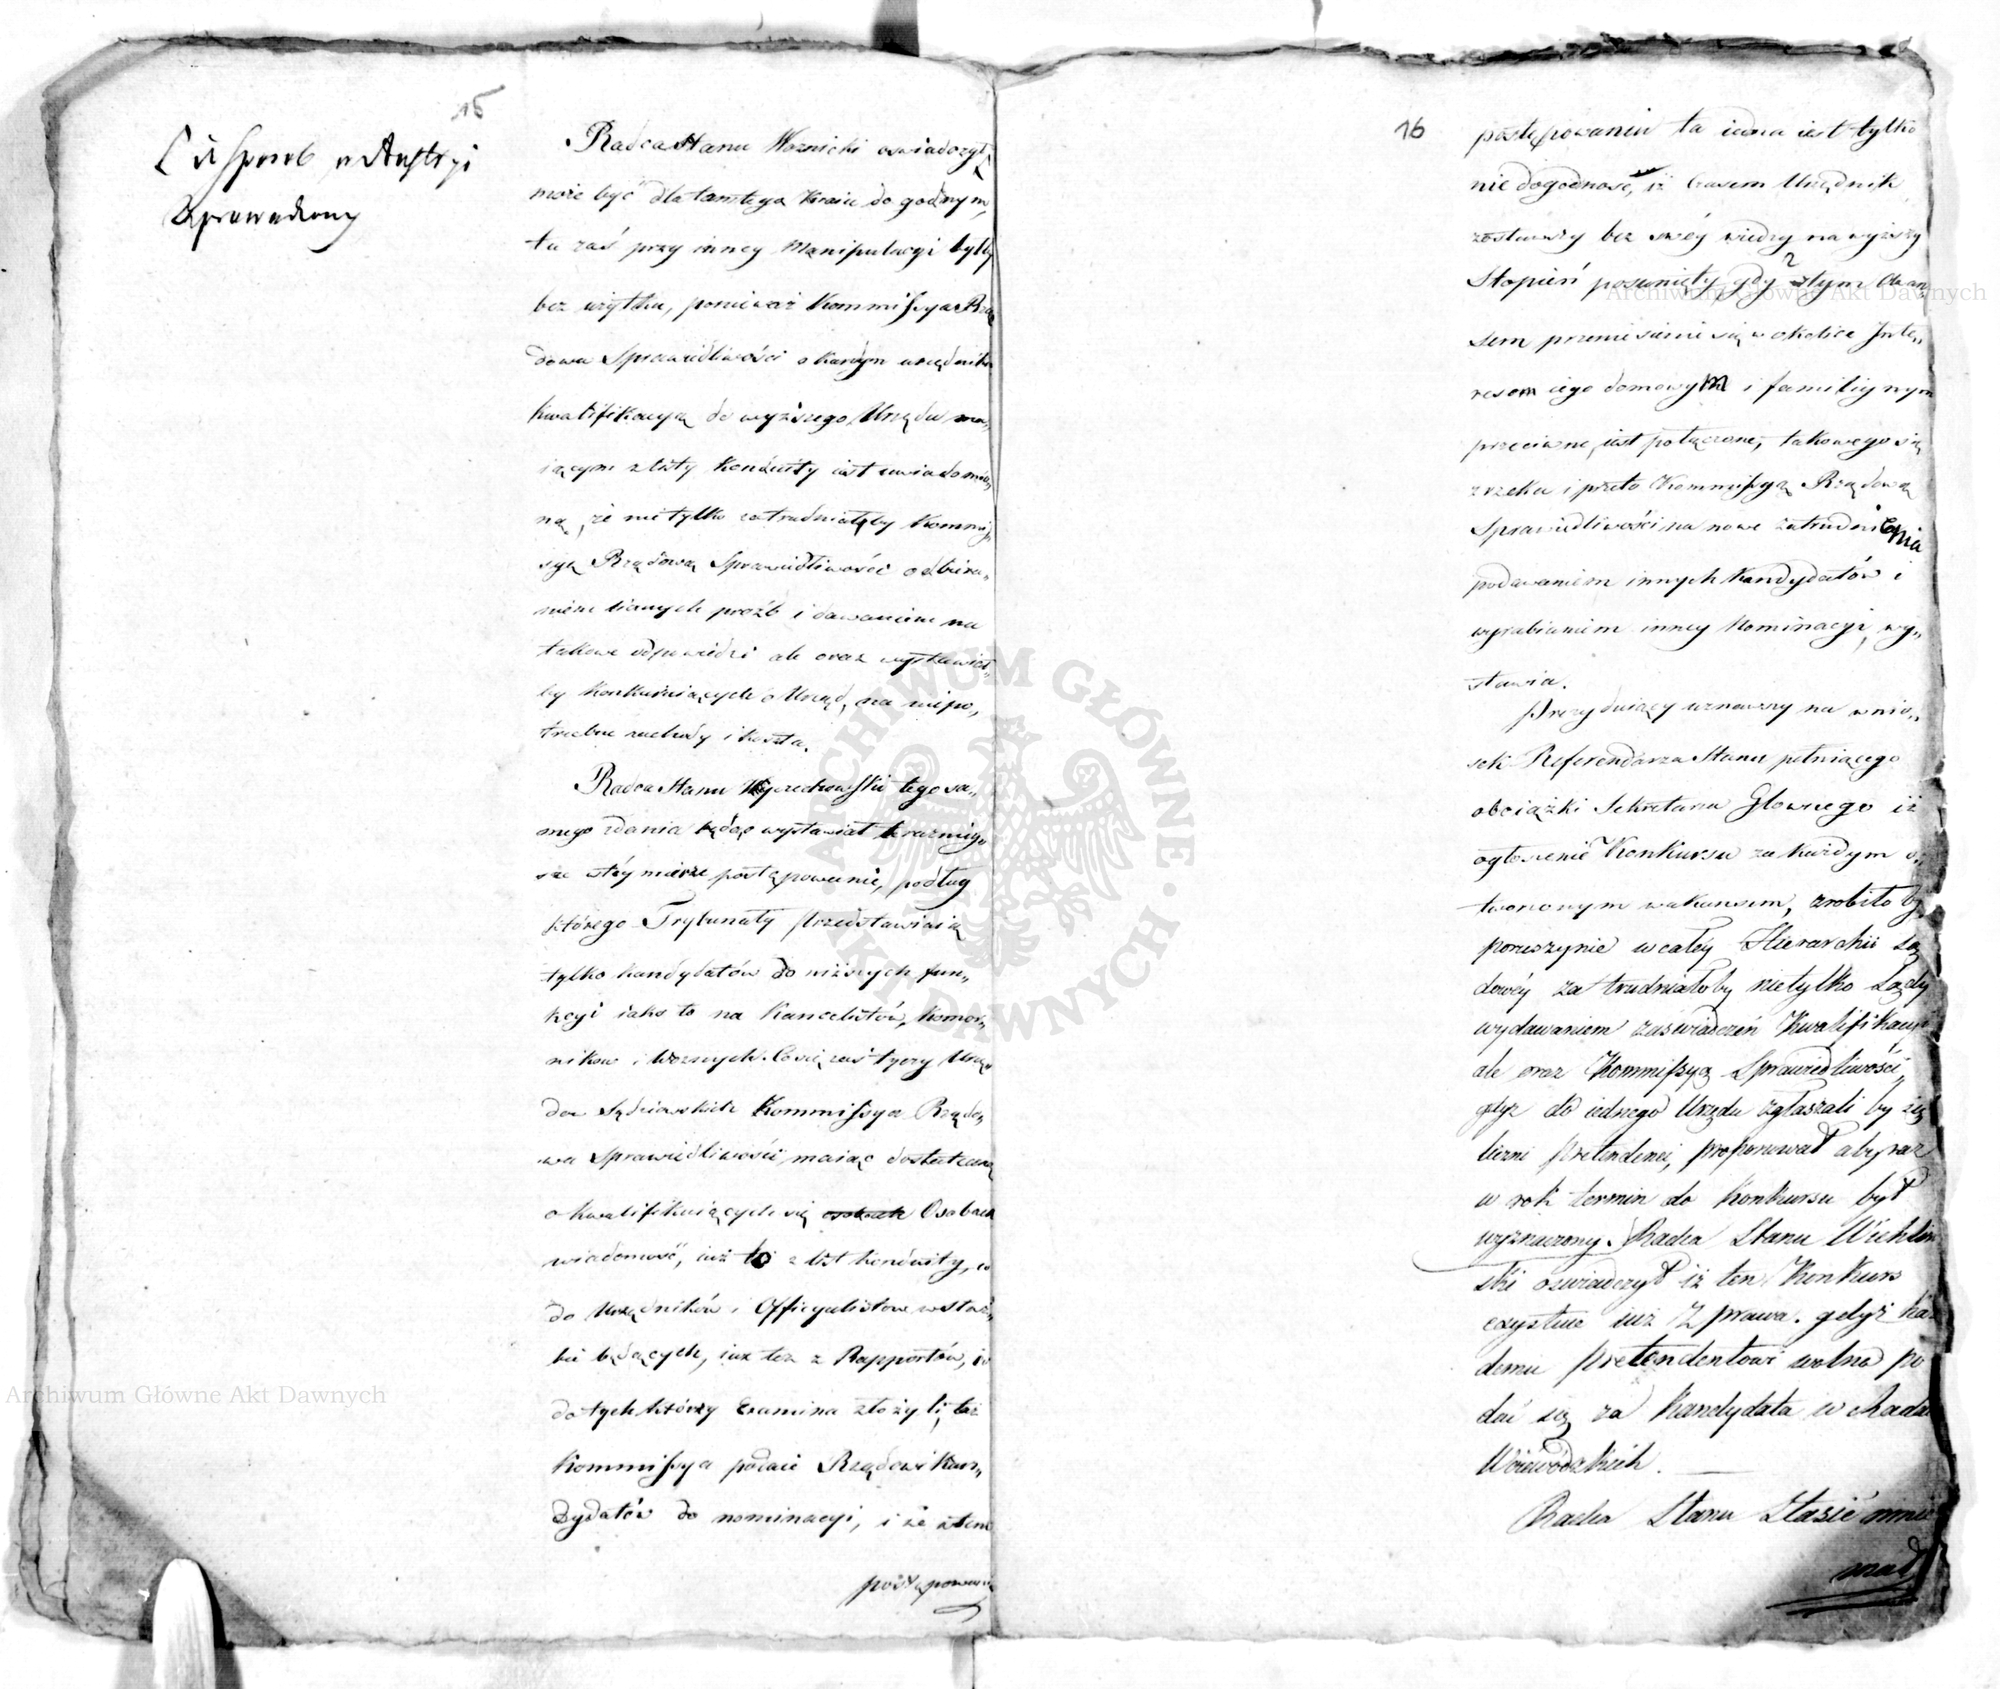 15
iż sposób w Austryi
zaprowadzony
Radca Stanu Woznicki oswiadczył,
może być dla tamtego Kraiu dogodnym,
tu zaś przy inney Manipulacyi byłby
bez użytku, ponieważ Kommissya Rzą
dowa Sprawiedliwości o każdym urzędniku
kwalifikacyą do wyższego Urzędu ma„
iącym z listy Konduity iest uwiadomio„
ną, że nietylko zatrudniałaby Kommis
syą Rządową Sprawiedliwości odbiera„
niem licznych proźb i dawaniem na
takowe odpowiedzi ale oraz wystawiał„
by Konkuruiących o Urząd, na niepo„
trzebne zachody i koszta.
Radca Stanu Wyczechowski tego sa„
mego zdania będąc wystawiał teraznięy„
sze w téy mierze postępowanie, podług
którego Trybunały przedstawiaią
tylko kandydatów do niższych fun„
kcyi iako to na Kancelistów, Komor„
ników i Woznych. Co się zaś tyczy Urzę„
dów Sędziowskich Kommissya Rządo„
wa Sprawiedliwości maiąc dostateczną
o kwalifikuiących się osobach Osobach
wiadomość, iuż to z list konduity, co
do Urzędników i Officyalistów w służ„
bie będących, iuż też z Rapportów, co
do tych którzy Examina złożyli, taż
Kommissya podaie Rządowi Kan„
dydatów do nominacyi, i że w tem
postępowaniu
16
postępowaniu ta iedna iest tylko
niedogodność, iż czasem Urzędnik
zostawszy bez swéy wiedzy na wyższy
Stopień posunięty gdy z tym Awan
sem przeniesienie się w okolice Inte„
resom iego domowym i familiynym
przeciwne, iest połączone, takowego się
zrzeka i przeto Kommissyą Rządową
Sprawiedliwości na nowe zatrudnienia
podawaniem innych Kandydatów i
wyrabianiem inney Nominacyi, wy„
stawia.
Prezyduiący uznawszy na wnio„
sek Referendarza Stanu pełniącego
obowiązki Sekretarza Głownego iż
ogłoszenie Konkursu za każdym o„
tworzonym wakansem, zrobiłoby
poruszynie w całéy Hierarchii Są
dowéy zatrudniałoby nietylko Sądy
wydawaniem zaświadczeń Kwalifikacyi
ale oraz Kommissyą Sprawiedliwości,
gdyż do iednego Urzędu zgłaszali by się
liczni pretendenci, proponował aby raz
w rok termin do Konkursu był
wyznaczony. Radca Stanu Wichliń
ski oświadczył iż ten Konkurs
exystuie iuż z prawa. gdyż każ
demu pretendentowi wolno po
dać się za Kandydata w Radach
Woiewódzkich.
Radca Stanu Stasic mnie
mał
Archiwum Główne Akt Dawnych
Archiwum Główne Akt Dawnych
ARCHIWUM GŁÓWNE AKT DAWNYCH